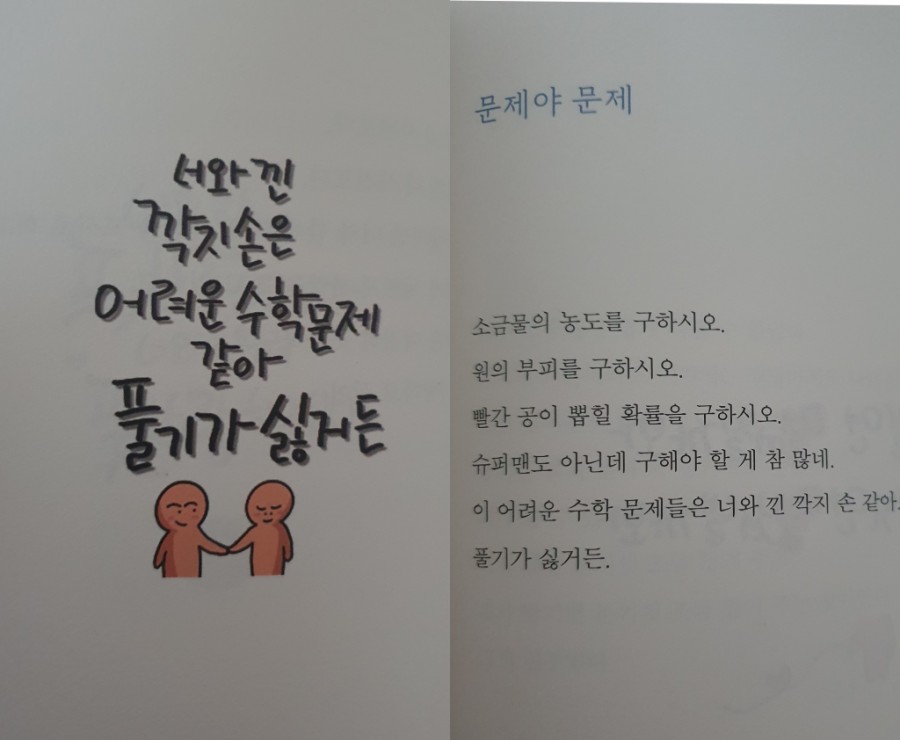 너와 낀
깍지손은
어려운 수학문제
같아
풀기가 싫거든
문제야 문제
소금물의 농도를 구하시오.
원의 부피를 구하시오.
빨간 공이 뽑힐 확률을 구하시오.
슈퍼맨도 아닌데 구해야 할 게 참 많네.
이 어려운 수학 문제들은 너와 낀 깍지 손 같아.
풀기가 싫거든.